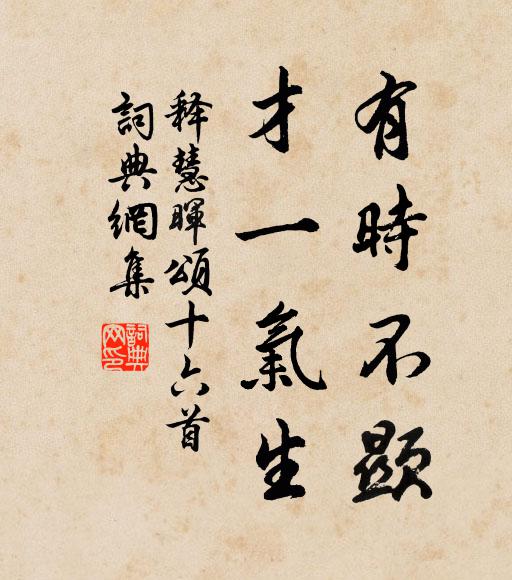 有時不顯
才一氣生
释慧暉頌十六首
詞典網集
詞典网印